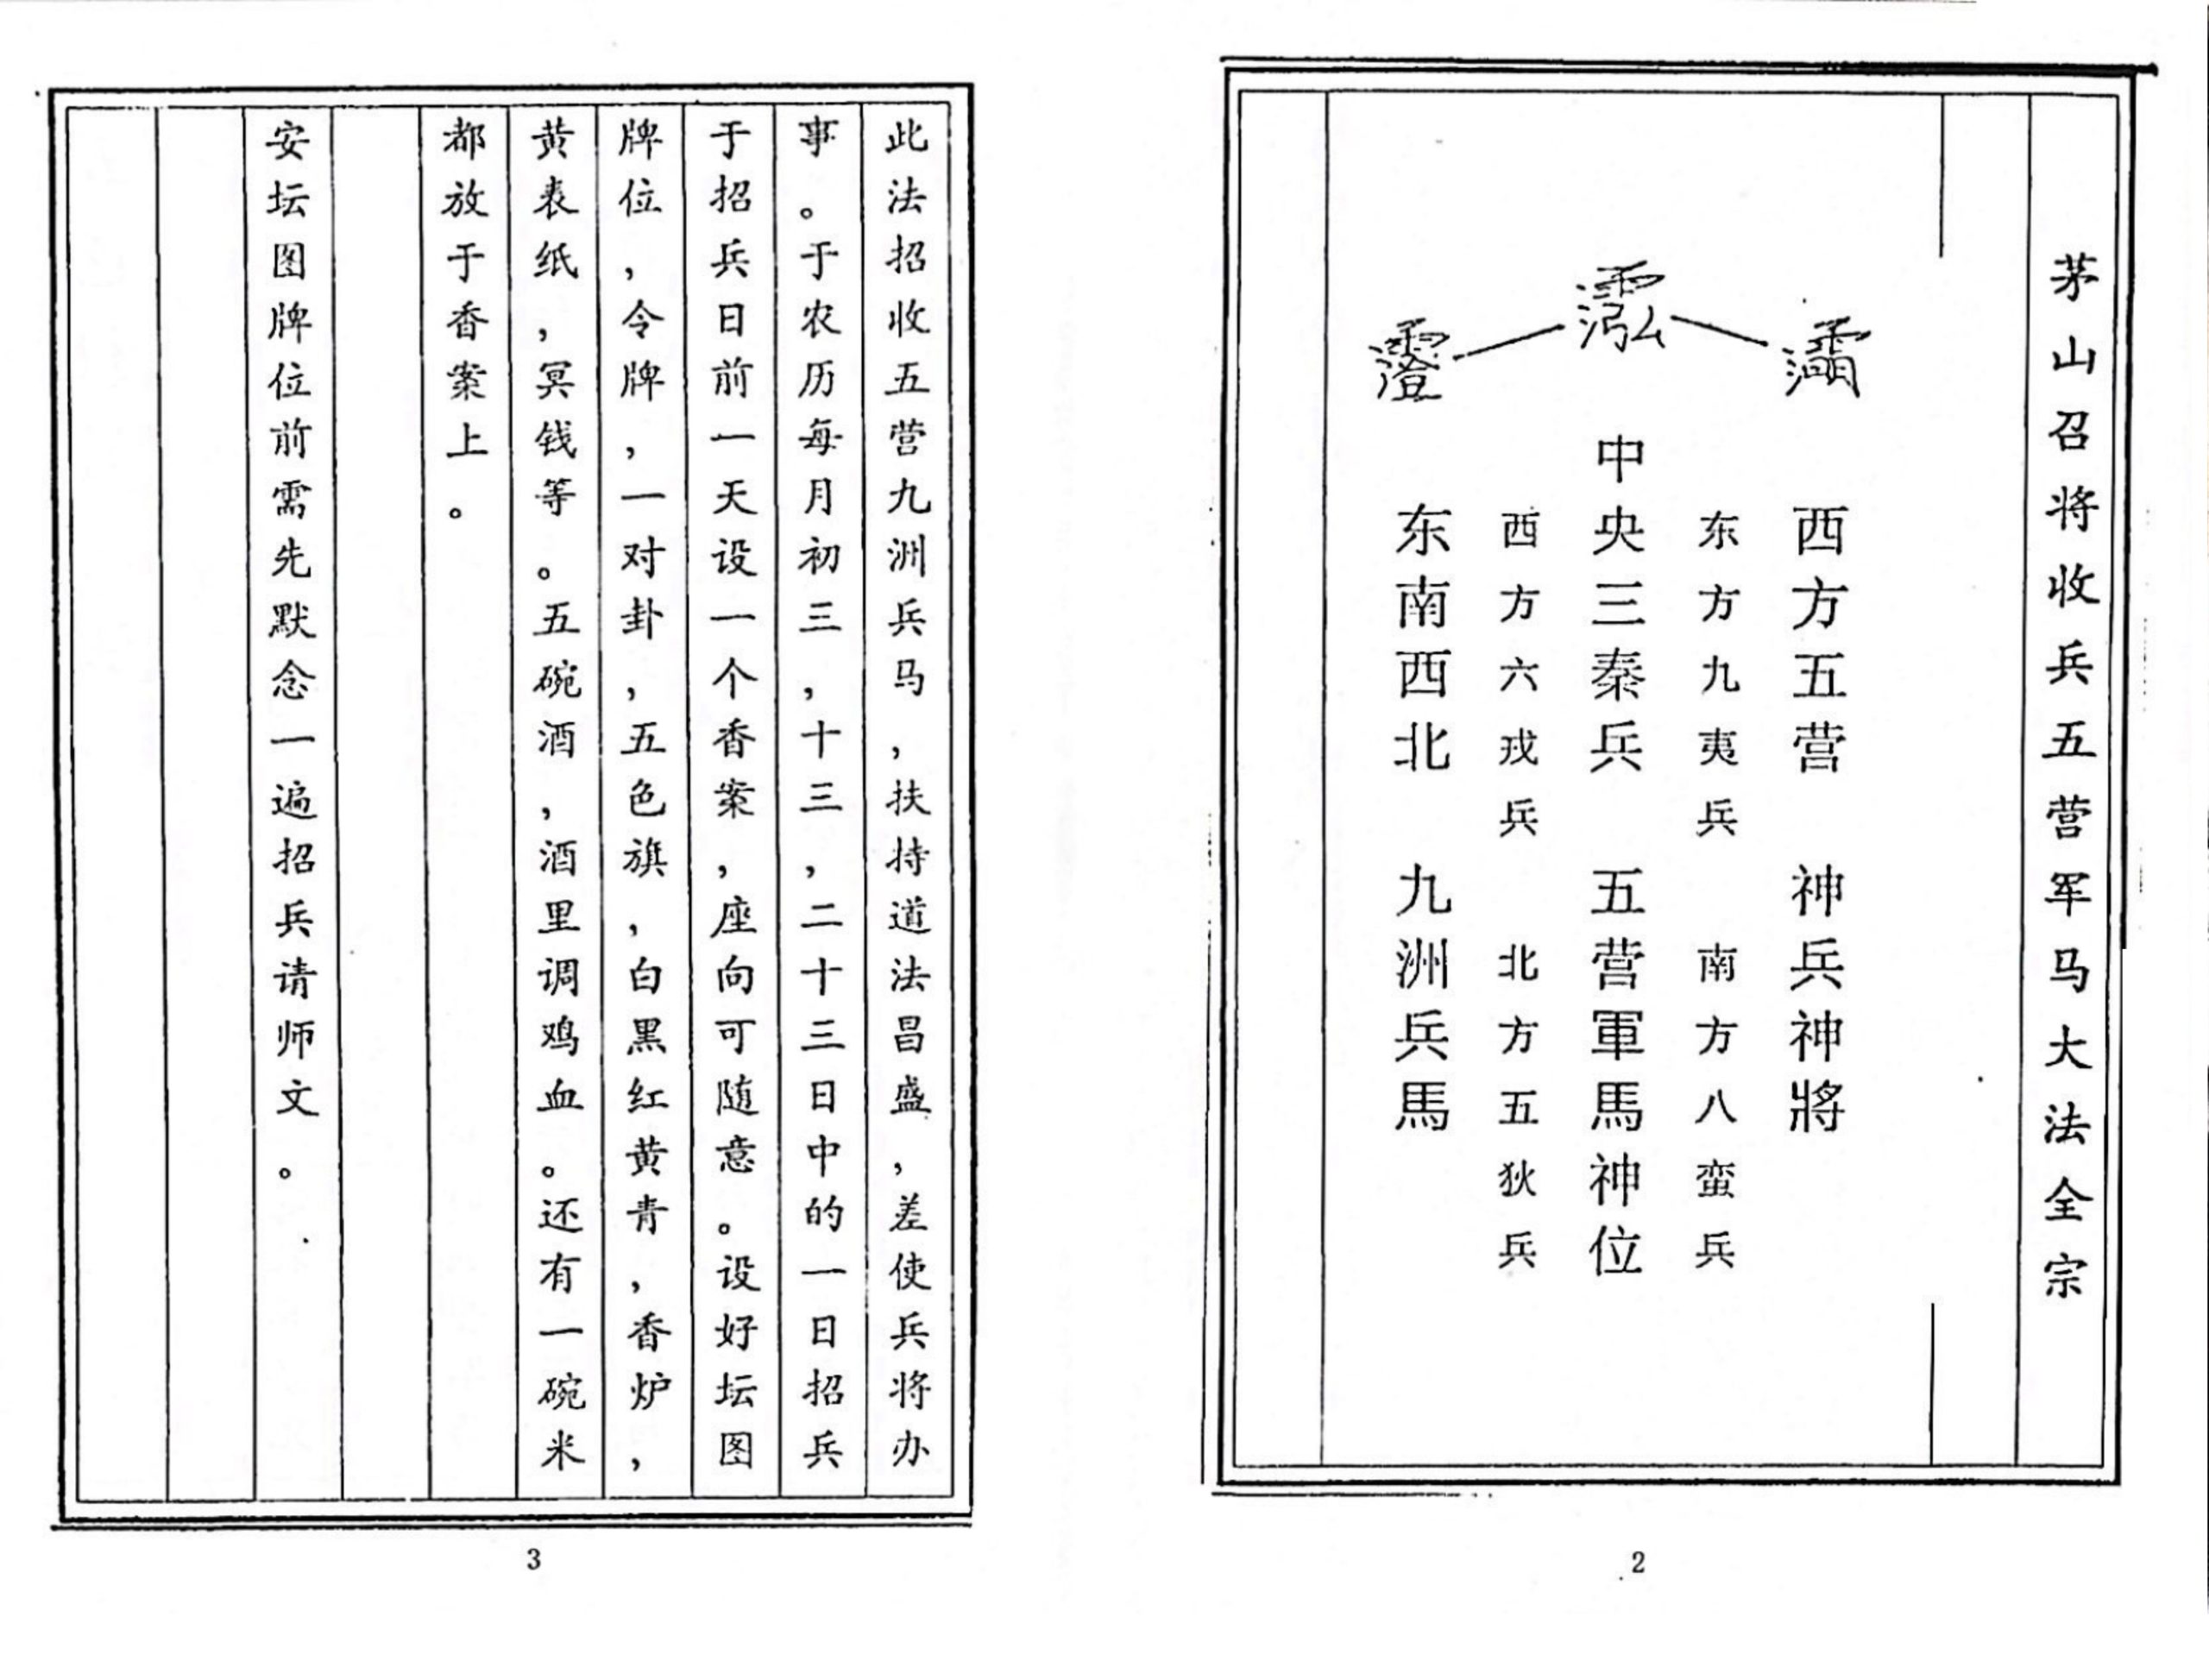 茅山召将收兵五营军马大法全宗
西方五营 神兵神將
东方九夷兵 南方八蛮兵
中央三秦兵 五营軍馬神位
西方六戎兵 北方五狄兵
东南西北 九洲兵馬
2
此法招收五营九洲兵马，扶持道法昌盛，差使兵将办
事。于农历每月初三，十三，二十三日中的一日招兵
于招兵日前一天设一个香案，座向可随意。设好坛图
牌位，令牌，一对卦，五色旗，白黑红黄青，香炉，
黄表纸，冥钱等。五碗酒，酒里调鸡血。还有一碗米
都放于香案上。
安坛图牌位前需先默念一遍招兵请师文。
3